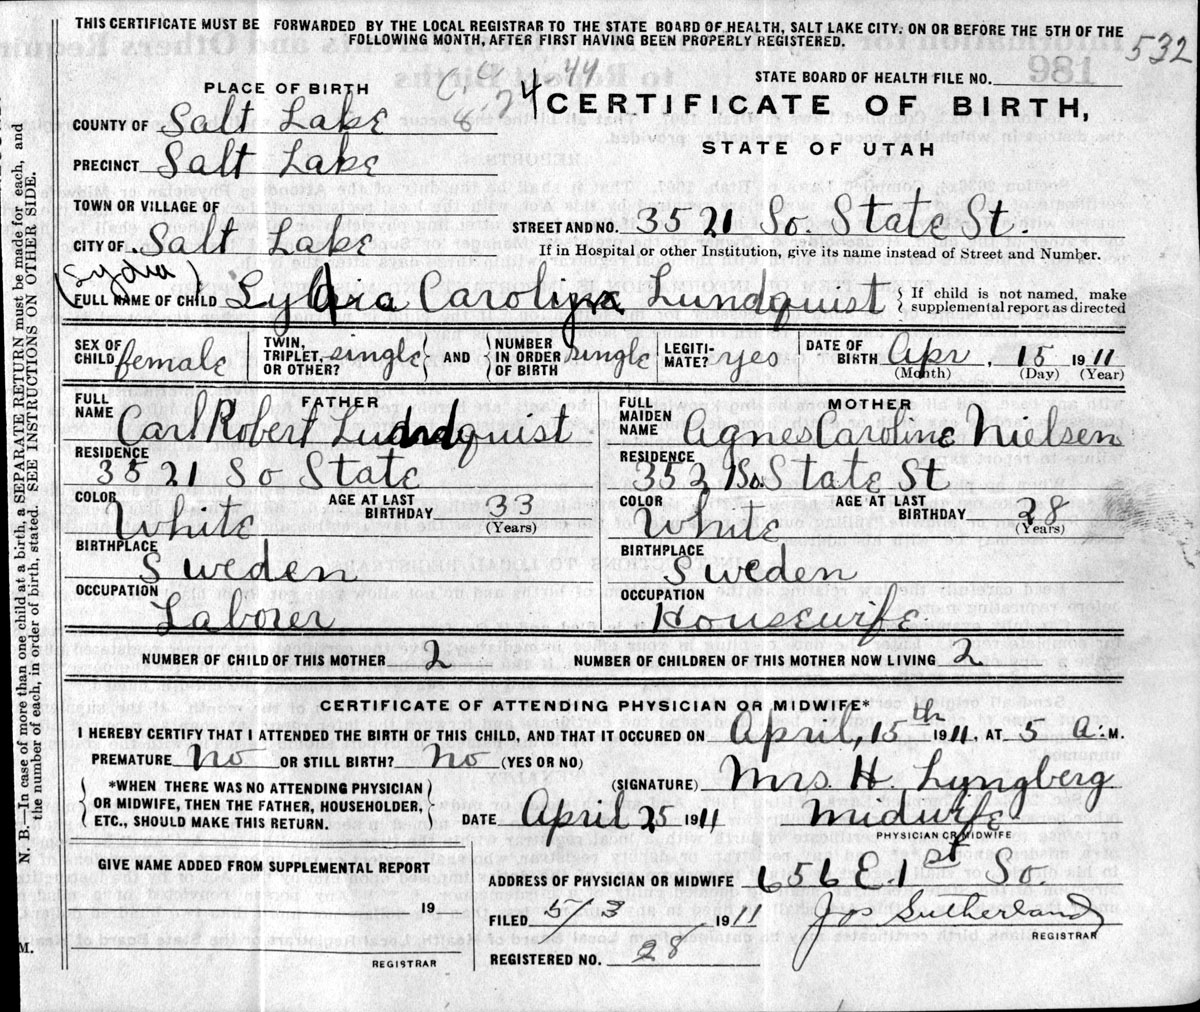 THIS CERTIFICATE MUST BE FORWARDED BY THE LOCAL REGISTRAR TO THE STATE BOARD OF HEALTH, SALT LAKE CITY, ON OR BEFORE THE 5TH OF THE
FOLLOWING MONTH, AFTER FIRST HAVING BEEN PROPERLY REGISTERED.
532
STATE BOARD OF HEALTH FILE NO.
PLACE OF BIRTH
44
CERTIFICATE OF BIRTH,
STATE OF UTAH
COUNTY OF Salt Lake
PRECINCT Salt Lake
TOWN OR VILLAGE OF
STREET AND NO. 3521 So. State St.
CITY OF Salt Lake
If in Hospital or other Institution, give its name instead of Street and Number.
(Lydia)
FULL NAME OF CHILD Lydia Carolina Lundquist { If child is not named, make
supplemental report as directed
SEX OF CHILD female TWIN, TRIPLET, OR OTHER? single } AND { NUMBER IN ORDER OF BIRTH single LEGITI-MATE? yes DATE OF BIRTH Apr, 15 1911
(Month) (Day) (Year)
FATHER
FULL NAME Carl Robert Lundquist
RESIDENCE 3521 So State
COLOR White AGE AT LAST BIRTHDAY 33 (Years)
BIRTHPLACE Sweden
OCCUPATION Laborer
MOTHER
FULL MAIDEN NAME Agnes Caroline Nielsen
RESIDENCE 3521 So. State St
COLOR White AGE AT LAST BIRTHDAY 28 (Years)
BIRTHPLACE Sweden
OCCUPATION Housewife
NUMBER OF CHILD OF THIS MOTHER 2 NUMBER OF CHILDREN OF THIS MOTHER NOW LIVING 2
CERTIFICATE OF ATTENDING PHYSICIAN OR MIDWIFE*
I HEREBY CERTIFY THAT I ATTENDED THE BIRTH OF THIS CHILD, AND THAT IT OCCURED ON April, 15th 1911, AT 5 A. M.
PREMATURE no OR STILL BIRTH? no (YES OR NO)
*WHEN THERE WAS NO ATTENDING PHYSICIAN
OR MIDWIFE, THEN THE FATHER, HOUSEHOLDER,
ETC., SHOULD MAKE THIS RETURN.
(SIGNATURE) Mrs. H. Lyngberg
DATE April 25 1911 Midwife
PHYSICIAN OR MIDWIFE
GIVE NAME ADDED FROM SUPPLEMENTAL REPORT
19
REGISTRAR
ADDRESS OF PHYSICIAN OR MIDWIFE 656 E. 1st So.
FILED 5/3 1911 Jos Sutherland
REGISTRAR
REGISTERED NO. 28
N. B.—In case of more than one child at a birth, a SEPARATE RETURN must be made for each, and
the number of each, in order of birth, stated. SEE INSTRUCTIONS ON OTHER SIDE.
M.